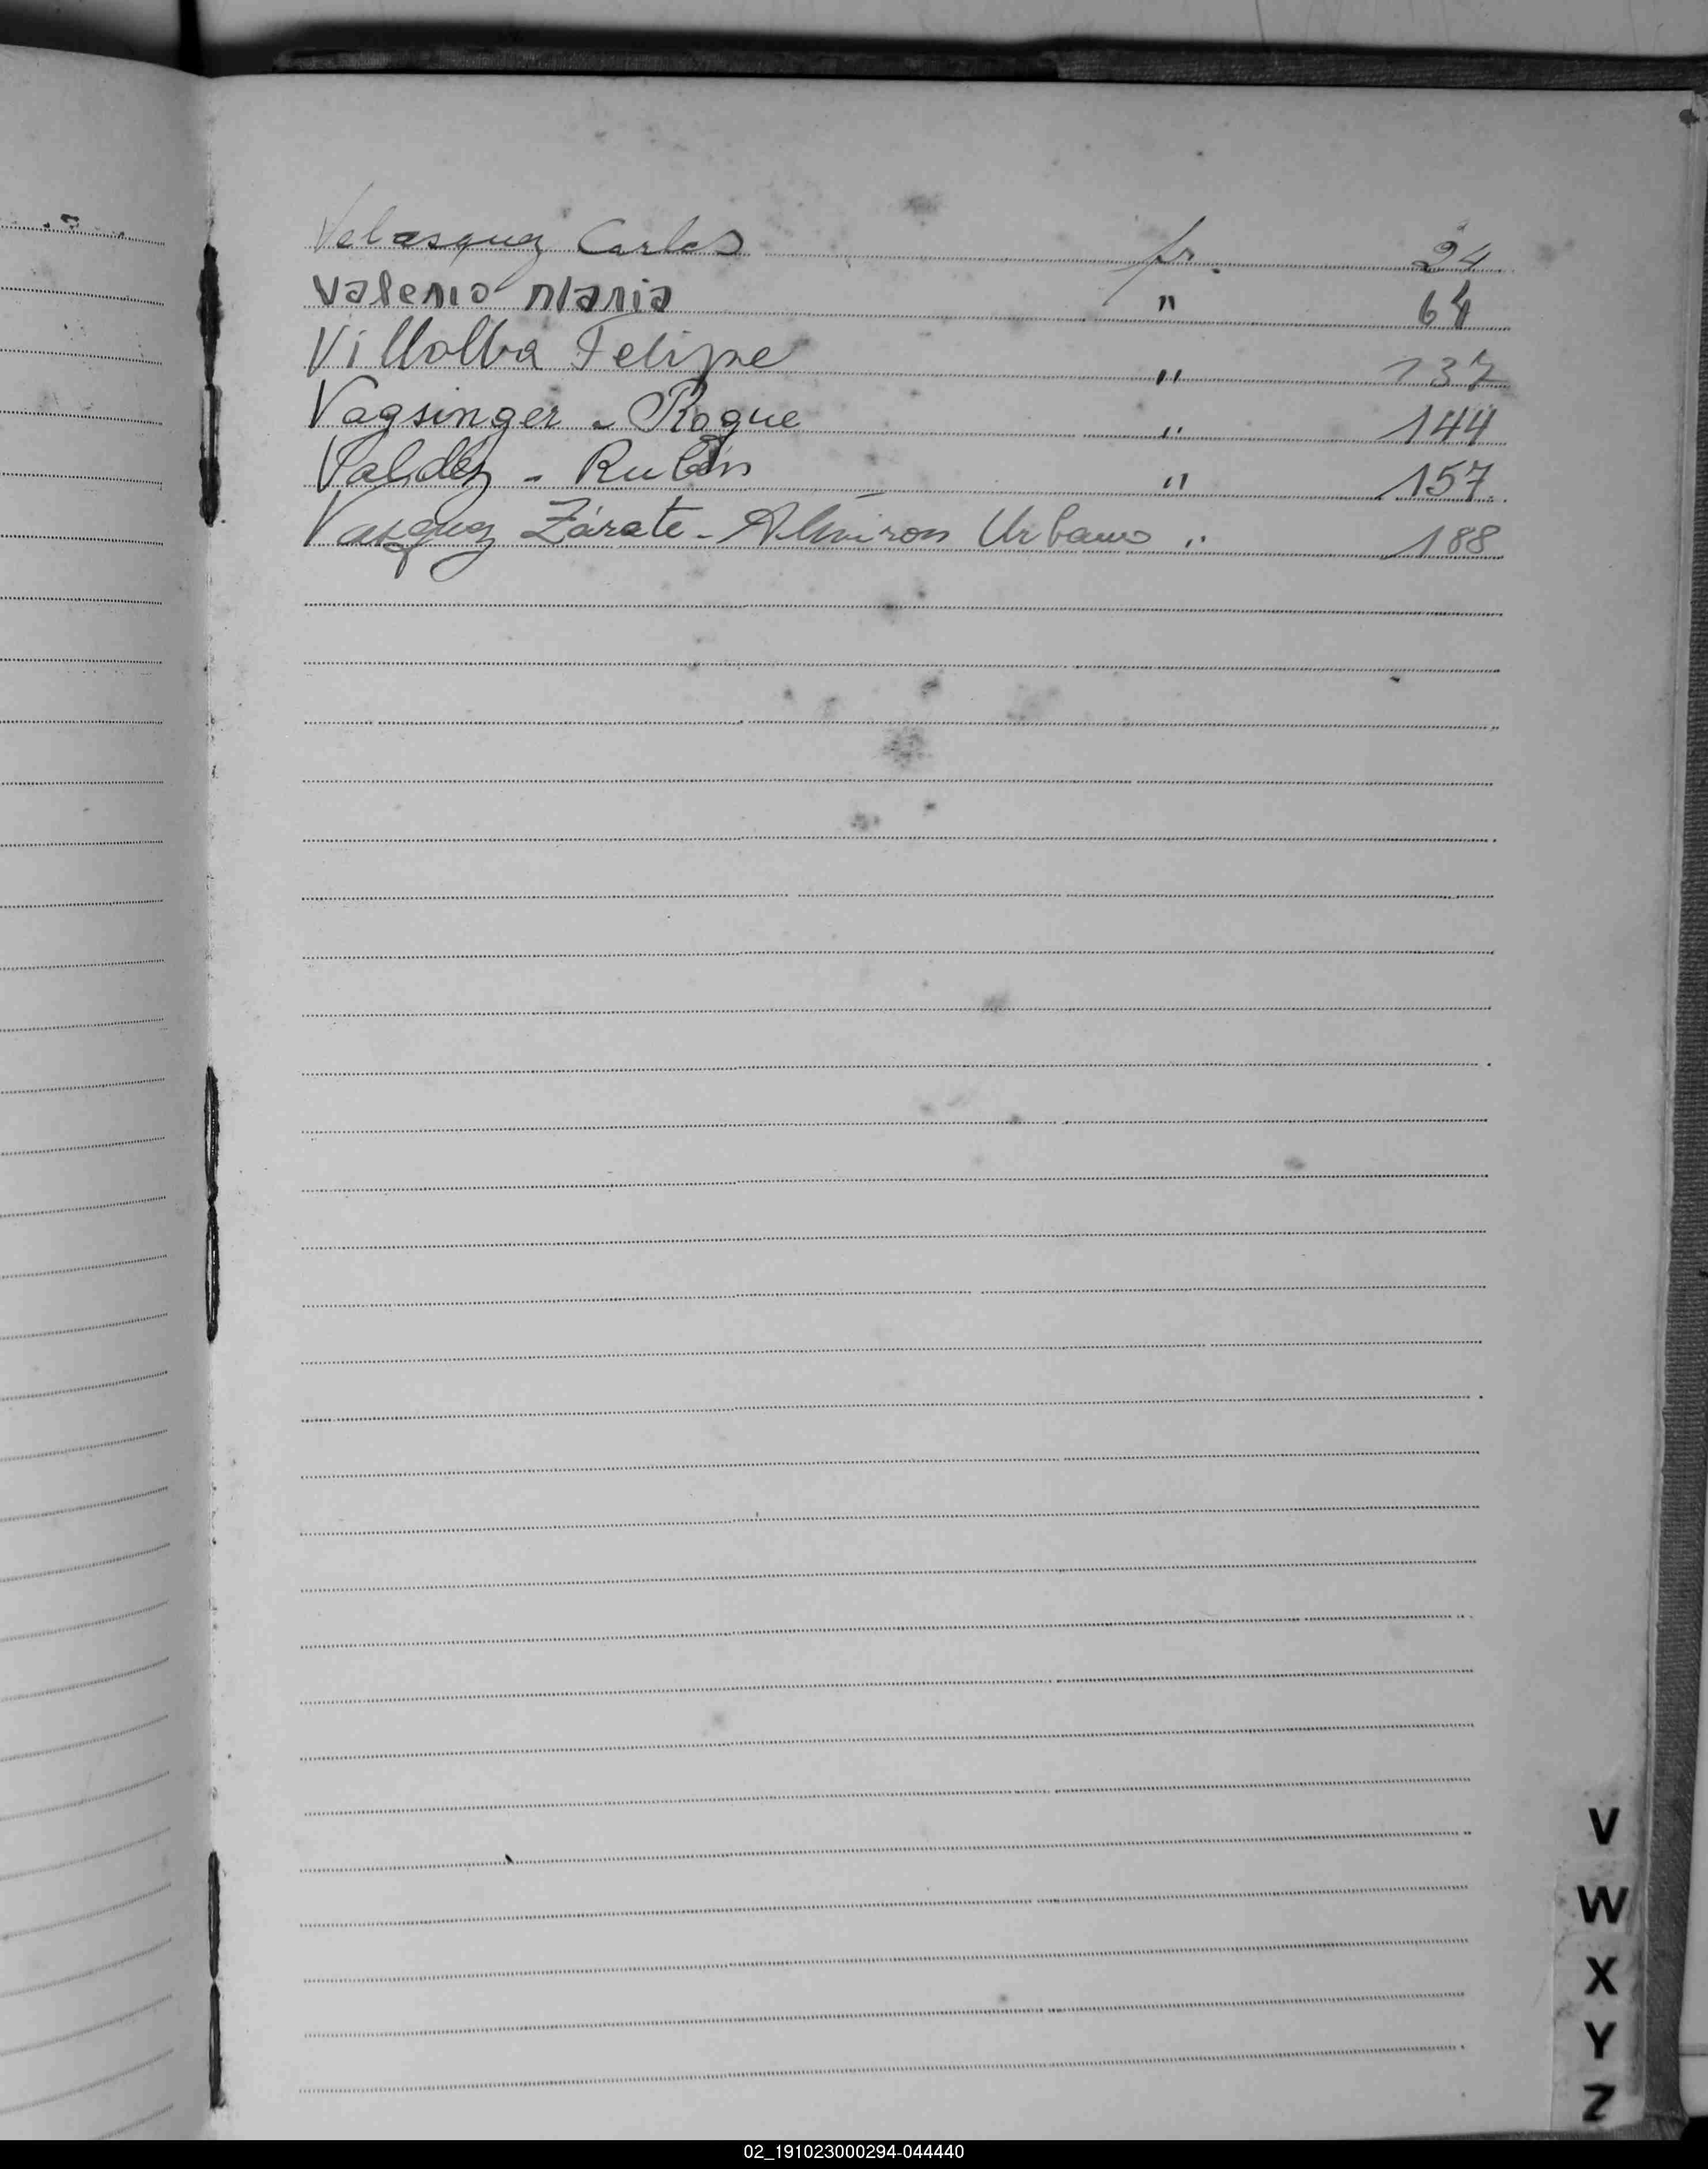 Velasquez Carlos fr. 24
Valerio Maria " 64
Villalba Felipe " 137
Vagsinger - Roque " 144
Valdéz - Rubén " 157
Vasquez Zárate - Almiron Urbano " 188
V
W
X
Y
Z
02_191023000294-044440